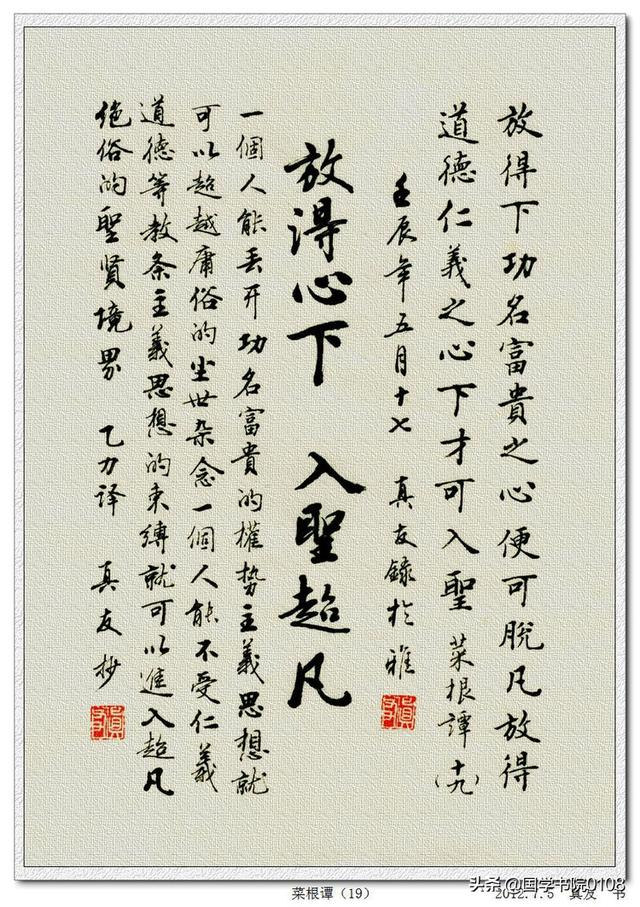 放得下功名富貴之心便可脫凡放得
道德仁義之心下才可入聖 菜根譚(十九)
壬辰年五月十七 真友錄於雅
放得心下 入聖超凡
一個人能丟開功名富貴的權势主義思想就
可以超越庸俗的尘世杂念一個人能不受仁義
道德等教条主義思想的束縛就可以進入超凡
绝俗的聖贤境界 乙力译 真友抄
菜根谭（19）
头条 @国学书院0108
2012.7.5 真友 书